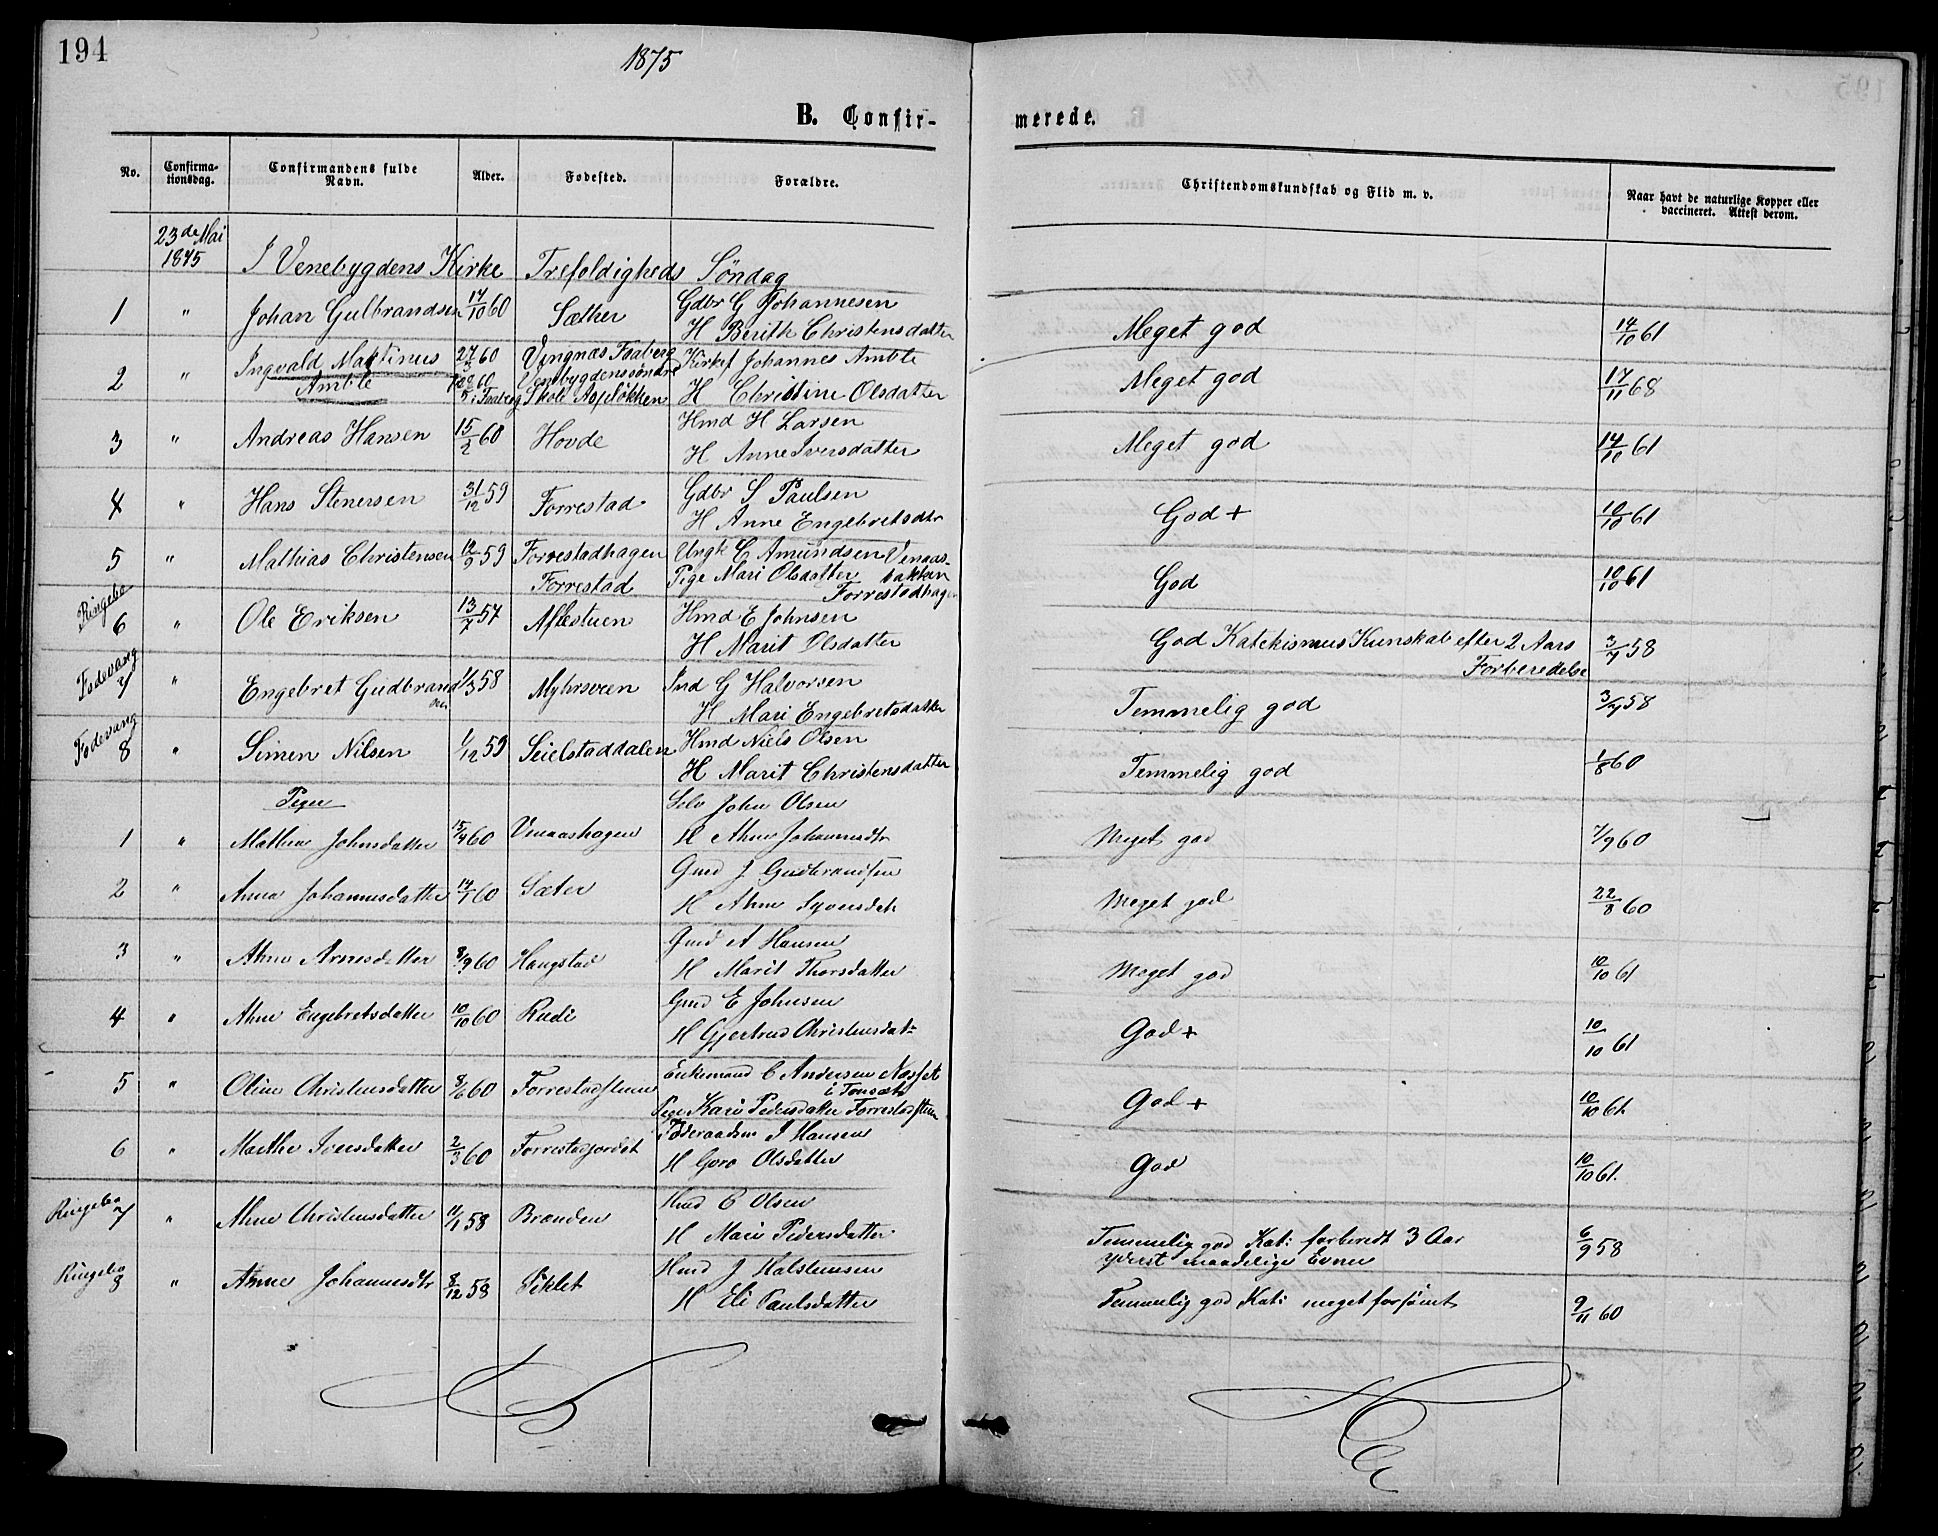 194
1875
B. Confirmerede.
No. Confirmationsdag. Confirmandens fulde Navn. Alder. Fødested. Forældre. Christendomskundskab og Flid m. v. Naar havt de naturlige Kopper eller vaccineret. Attest derom.
23de Mai
1875 I Venebygdens Kirke Trefoldigheds Söndag
1 " Johan Gulbrandsen 14/10 60 Sæther Gdbr G Johannesen
H Berith Christensdatter Meget god 14/10 61
2 " Ingvald Martinus 60 Vingnæs Faaberg Kirkes Johannes Amble
Amble Faaberg Venebygdens söndre Skole H Christine Olsdatter Meget god 17/11 68
3 " Andreas Hansen 15/2 60 Hovde Hmd H Larsen
H Anne Iversdatter Meget god 14/10 61
4 " Hans Stenersen 31/12 59 Forrestad Gdbr S Paulsen
H Anne Engebretsdtr God + 10/10 61
5 " Mathias Christensen 12/9 59 Forrestadhagen Ungk C Amundsen Venaas-
Forrestad Pige Mari Olsdatter bakken
Forrestadhagen God 10/10 61
Ringebo
6 " Ole Eriksen 13/7 57 Aflestuen Hmd E Johnsen
H Marit Olsdatter God Katekismus Kunskab efter 2 Aars
Forberedelse 3/7 58
Fodevang
7 " Engebret Gudbrandsen 1/3 58 Myhrsveen Ind G Halvorsen
H Mari Engebretsdatter Temmelig god 3/7 58
Fodevang
8 " Simen Nilsen 1/12 59 Seielstaddalen Hmd Niels Olsen
H Marit Christensdatter Temmelig god 1/8 60
Piger
1 " Mathea Johnsdatter 15/4 60 Venaashagen Selv John Olsen
H Ahne Johannesdtr Meget god 7/9 60
2 " Anna Johannesdatter 14/7 60 Sæter Gmd J Gudbrandsen
H Ahne Meget god 22/8 60
3 " Ahne Arnesdatter 8/9 60 Haugstad Gmd A Hansen
H Marit Thorsdatter Meget god 10/10 61
4 " Ahne Engebretsdatter 10/10 60 Rudi Gmd E Johnsen
H Gjertrud Christensdat: God + 10/10 61
5 " Oline Christensdatter 8/6 60 Forrestadstuen Enkemand C Andersen Næsset
i Tonsæt
Pige Kari Pedersdatter Forrestadstuen God + 10/10 61
6 " Marthe Iversdatter 2/3 60 Forrestadjordet Föderaadsm I Hansen
H Goro Olsdatter God 10/10 61.
Ringebo
7 " Ahne Christensdatter 11/1 58 Branden Hmd C Olsen
H Mari Pedersdatter Temmelig god Kat: forberedt 3 Aar
yderst maadelige Evner 6/9 58
Ringebo
8 " Anne Johannesdtr 8/12 58 Piklet Hmd J Halstensen
H Eli Paulsdatter Temmelig god Kat: meget forsömt 9/11 60